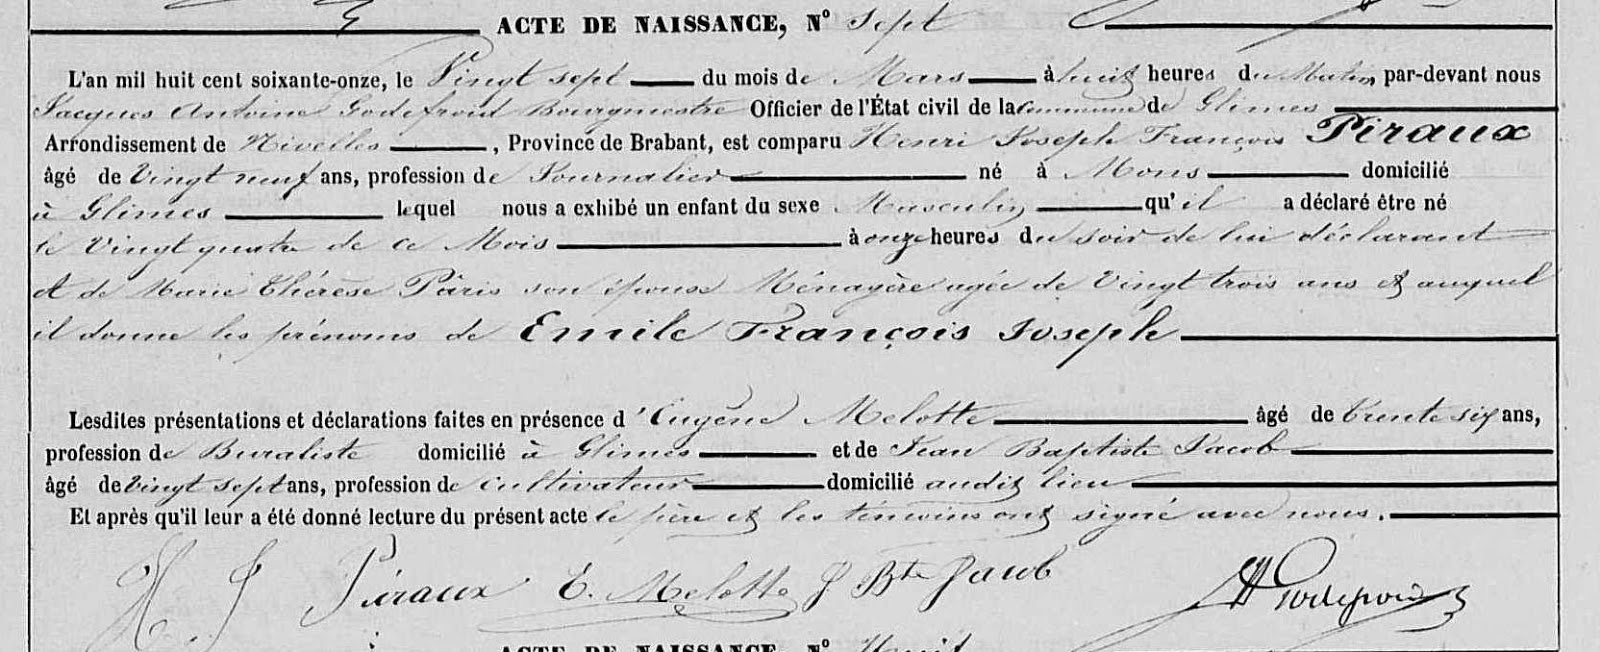 ACTE DE NAISSANCE, N° Sept
L'an mil huit cent soixante-onze, le Vingt sept du mois de Mars à huit heures du Matin, par-devant nous
Jacques Antoine Godefroid Bourgmestre Officier de l'État civil de la commune de Glimes
Arrondissement de Nivelles, Province de Brabant, est comparu Henri Joseph François Piraux
âgé de Vingt neuf ans, profession de Journalier né à Mons domicilié
à Glimes lequel nous a exhibé un enfant du sexe Masculin qu'il a déclaré être né
le Vingt quatre de ce Mois à onze heures du soir de lui déclarant
et de Marie Thérèse Pâris son épouse Ménagère agée de Vingt trois ans et auquel
il donne les prénoms de Emile François Joseph
Lesdites présentations et déclarations faites en présence d'Eugène Melotte âgé de trente six ans,
profession de Buraliste domicilié à Glimes et de Jean Baptiste Jacob
âgé de vingt sept ans, profession de cultivateur domicilié audit lieu
Et après qu'il leur a été donné lecture du présent acte le père et les témoins ont signé avec nous.
H J Piraux E. Melotte J Bte Jacob Godefroid
ACTE DE NAISSANCE, N° Huit